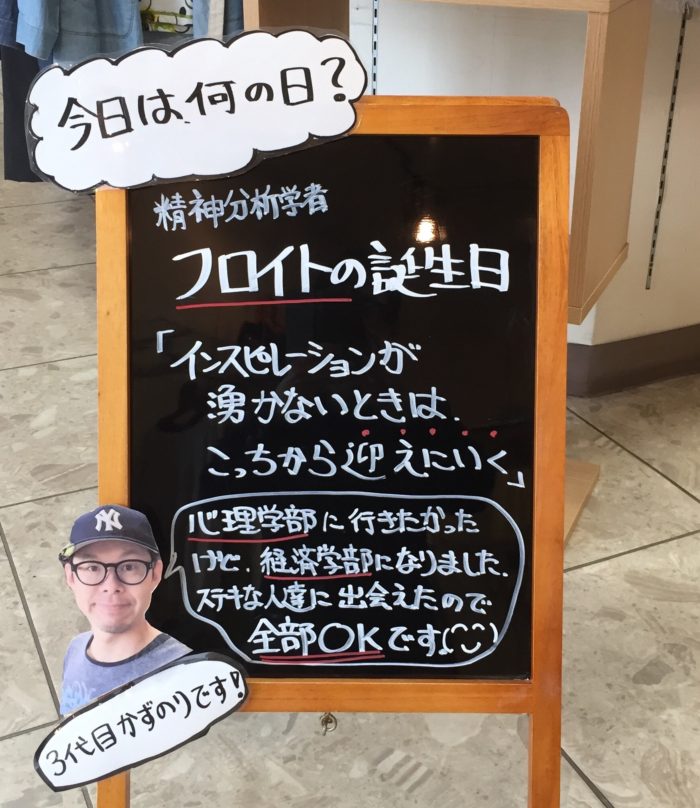 今日は何の日?
精神分析学者
フロイトの誕生日
「インスピレーションが
湧かないときは、
こっちから迎えにいく」
NY
心理学部に行きたかった
けど、経済学部になりました。
ステキな人達に出会えたので
全部OKです♪
3代目かずのりです!